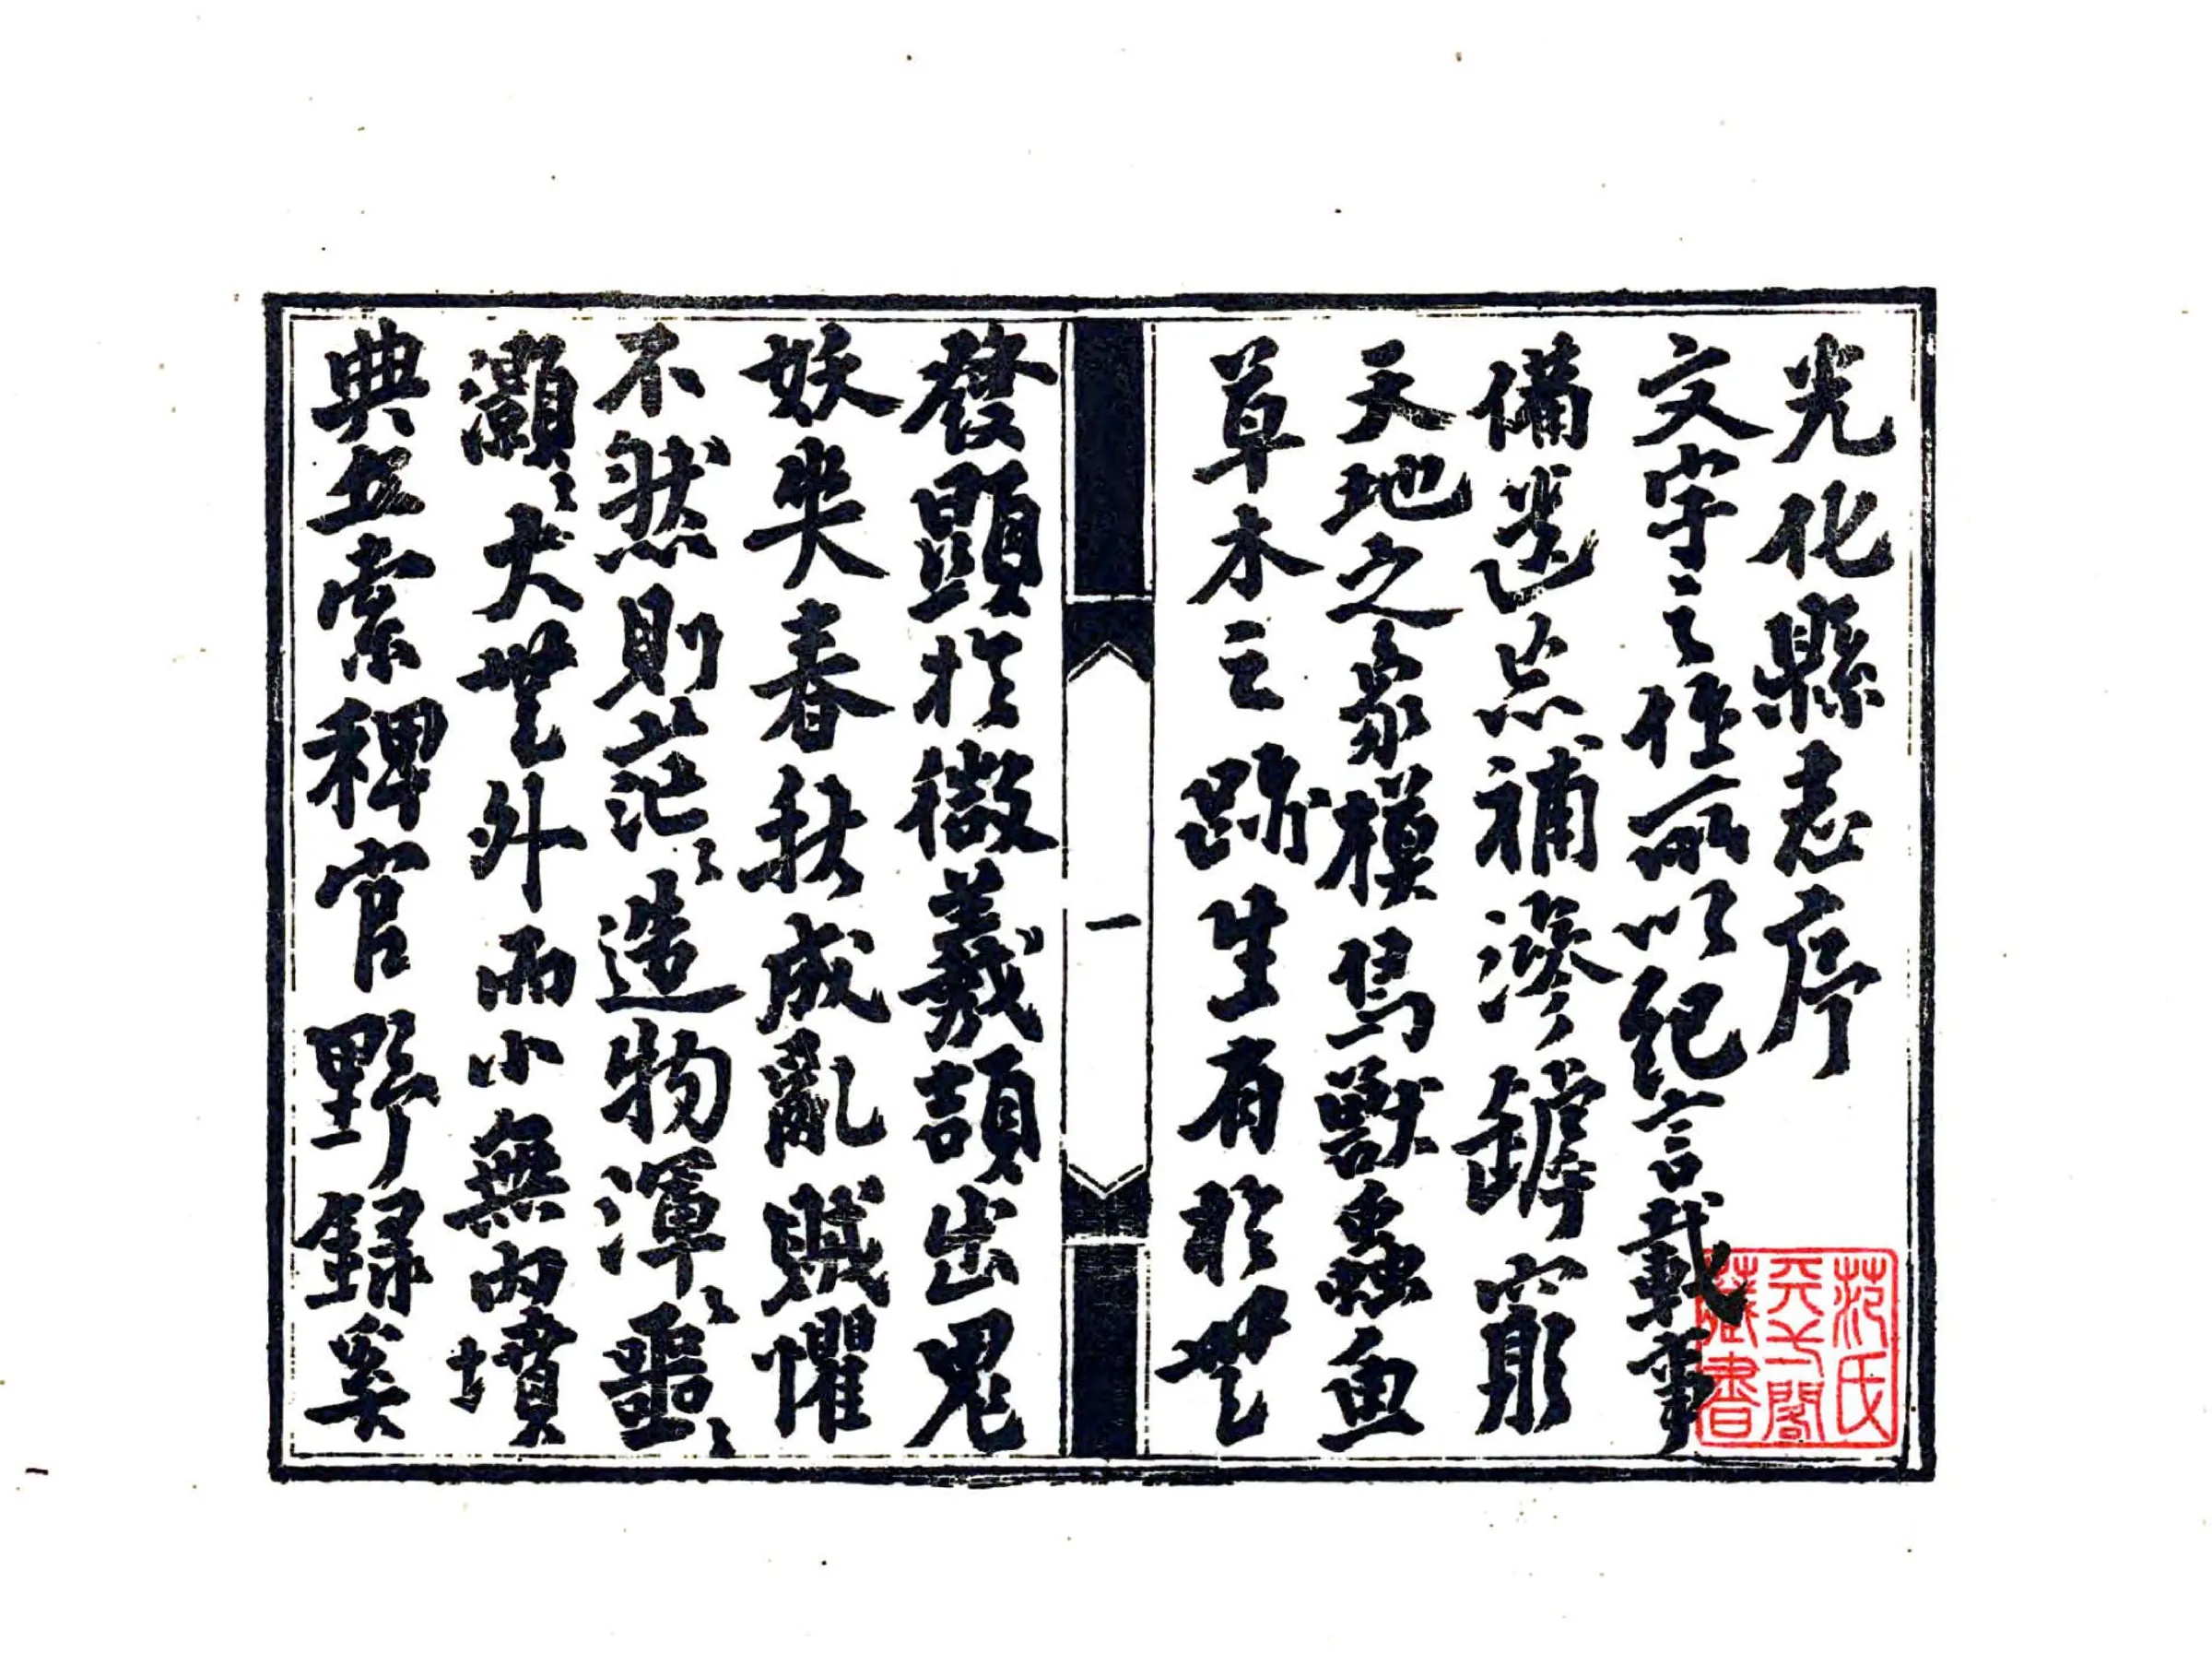 光化縣志序
文字之作所以紀言載事
備遺忘補滲罅窮
天地之象模鳥獸蟲魚
草木之跡生有於無
發顯於微羲頡出鬼
妖哭春秋成亂賊懼
不然則茫〻造物渾〻噩〻
灝〻大無外而小無內墳
典丘索稗官野録奚
一
范氏
天一閣
藏書